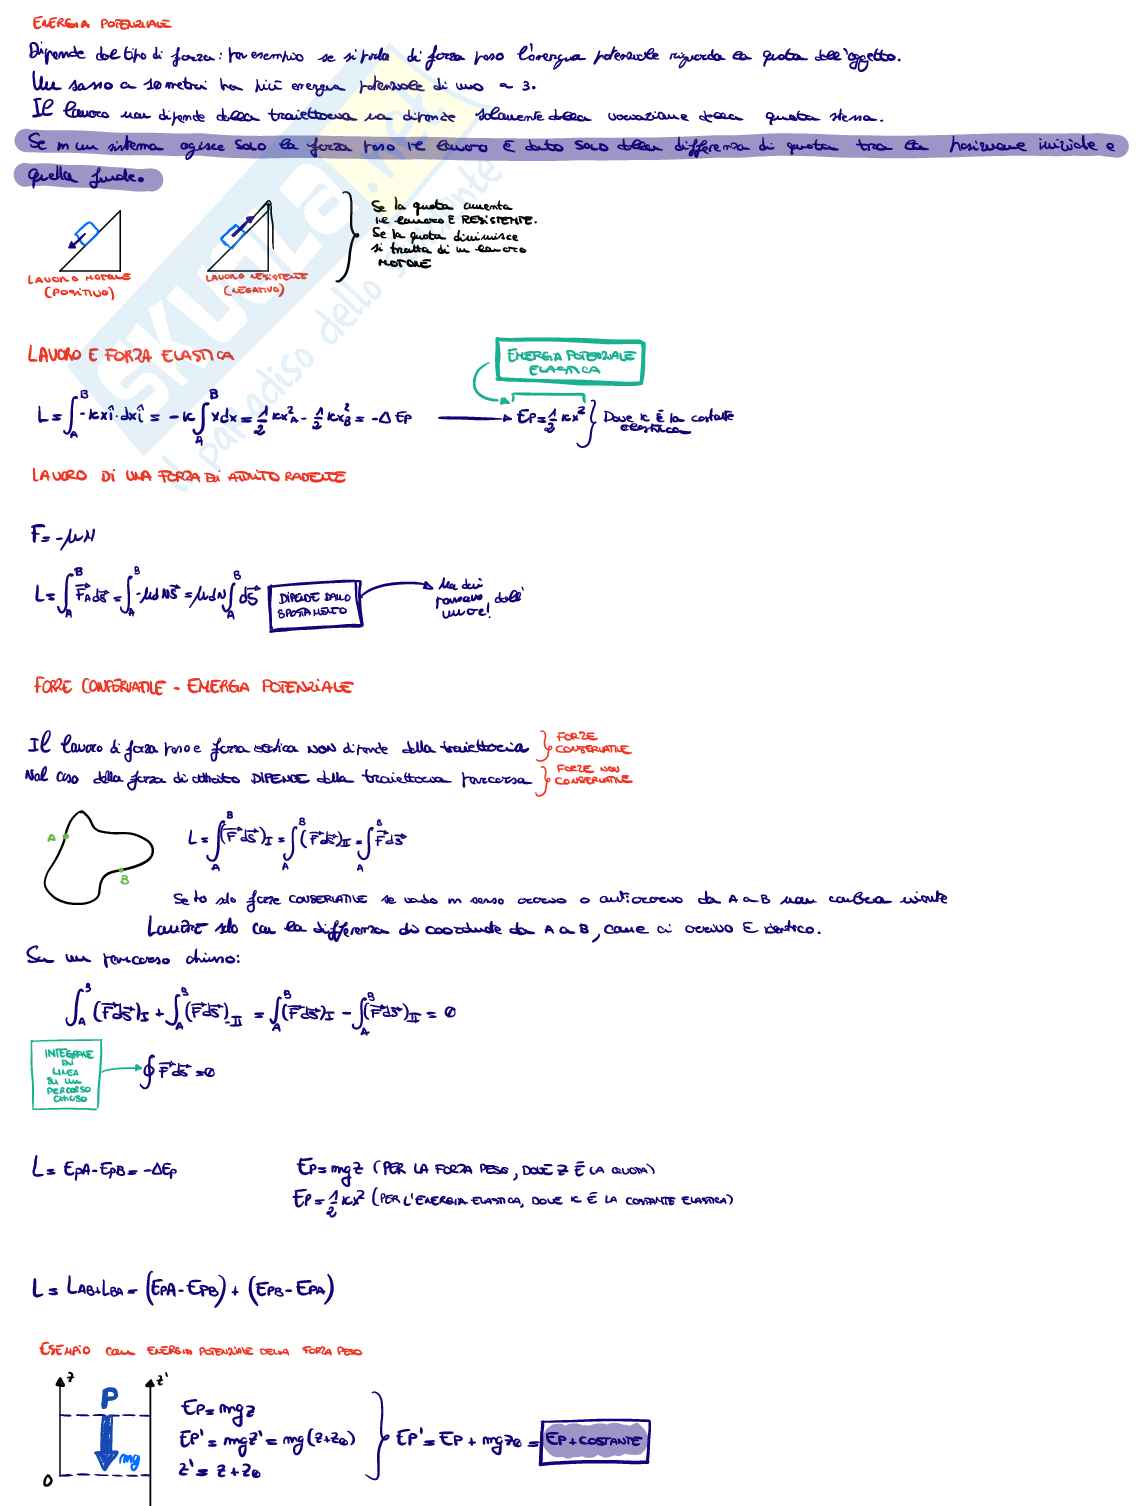 ENERGIA POTENZIALE
Dipende dal tipo di forza: per esempio se si parla di forza peso l'energia potenziale riguarda la quota dell'oggetto.
Un sasso a 10 metri ha più energia potenziale di uno a 3.
Il lavoro non dipende dalla traiettoria ma dipende solamente dalla variazione della quota stessa.
Se in un sistema agisce solo la forza peso il lavoro È dato solo dalla differenza di quota tra la posizione iniziale e
quella finale.
Se la quota aumenta
il lavoro È RESISTENTE.
Se la quota diminuisce
si tratta di un lavoro
MOTORE
LAVORO MOTORE
(POSITIVO)
LAVORO RESISTENTE
(NEGATIVO)
LAVORO E FORZA ELASTICA
ENERGIA POTENZIALE
ELASTICA
L = ∫_A^B -kxî · dxî = -k ∫_A^B xdx = 1/2 kx²_A - 1/2 kx²_B = -ΔEp → Ep = 1/2 kx² } Dove k È la costante
elastica
LAVORO DI UNA FORZA DI ATTRITO RADENTE
F = -μN
L = ∫_A^B F_A ds = ∫_A^B -μd N s = μd N ∫_A^B ds
DIPENDE DALLO
SPOSTAMENTO
dall'
FORZE CONSERVATIVE - ENERGIA POTENZIALE
Il lavoro di forza peso e forza elastica NON dipende dalla traiettoria } FORZE CONSERVATIVE
Nel caso della forza di attrito DIPENDE dalla traiettoria percorsa } FORZE NON CONSERVATIVE
A
B
L = ∫_A^B (F ds)_I = ∫_A^B (F ds)_II = ∫_A^B F ds
Se ho solo forze CONSERVATIVE se vado in senso orario o antiorario da A a B non cambia niente
solo con la differenza di coordinate da A a B, come ci arrivo È identico.
Su un percorso chiuso:
∫_A^B (F ds)_I + ∫_A^B (F ds)_-II = ∫_A^B (F ds)_I - ∫_A^B (F ds)_II = 0
INTEGRALE
DI
LINEA
SU UN
PERCORSO
CHIUSO
∮ F ds = 0
L = EpA - EpB = -ΔEp
Ep = mgz (PER LA FORZA PESO, DOVE Z È LA QUOTA)
Ep = 1/2 kx² (PER L'ENERGIA ELASTICA, DOVE K È LA COSTANTE ELASTICA)
L = LAB + LBA = (EpA - EpB) + (EpB - EpA)
ESEMPIO con ENERGIA POTENZIALE DELLA FORZA PESO
z
z'
P
mg
0
Ep = mgz
Ep' = mgz' = mg(z+z0)
z' = z + z0
Ep' = Ep + mgz0 = Ep + COSTANTE
SKUOLA.net
il paradiso dello studente